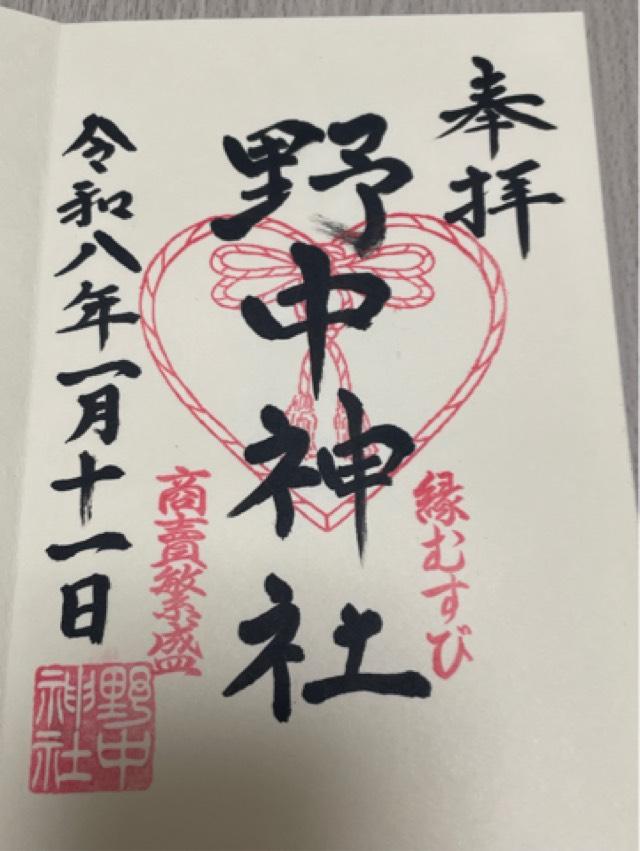 奉拝
野中神社
縁むすび
商賣繁盛
令和八年一月十一日
野中
神社